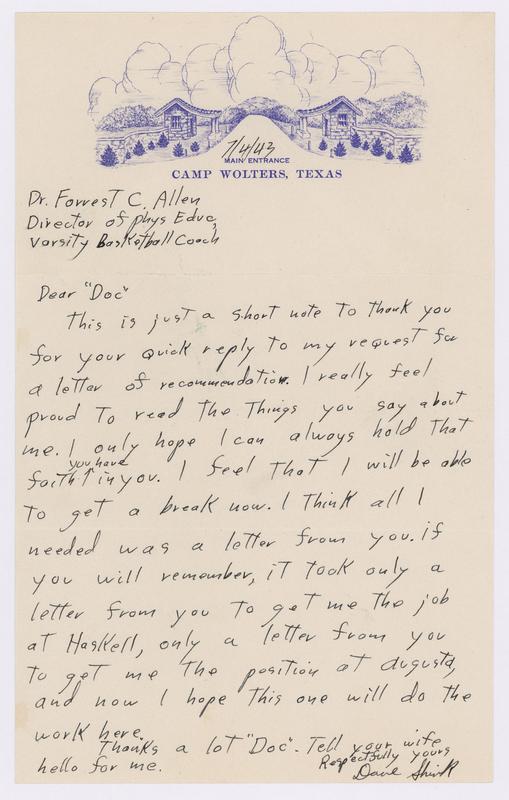 7/4/43
MAIN ENTRANCE
CAMP WOLTERS, TEXAS
Dr. Forrest C. Allen
Director of phys Educ,
Varsity Basketball Coach
Dear "Doc"
This is just a short note to thank you
for your quick reply to my request for
a letter of recommendation. I really feel
proud to read the things you say about
me. I only hope I can always hold that
you have
faith ↑ in you. I feel that I will be able
to get a break now. I think all I
needed was a letter from you. if
you will remember, it took only a
letter from you to get me the job
at Haskell, only a letter from you
to get me the position at augusta,
and now I hope this one will do the
work here.
Thanks a lot "Doc". Tell your wife
hello for me.
Respectfully yours
Dave Shirk